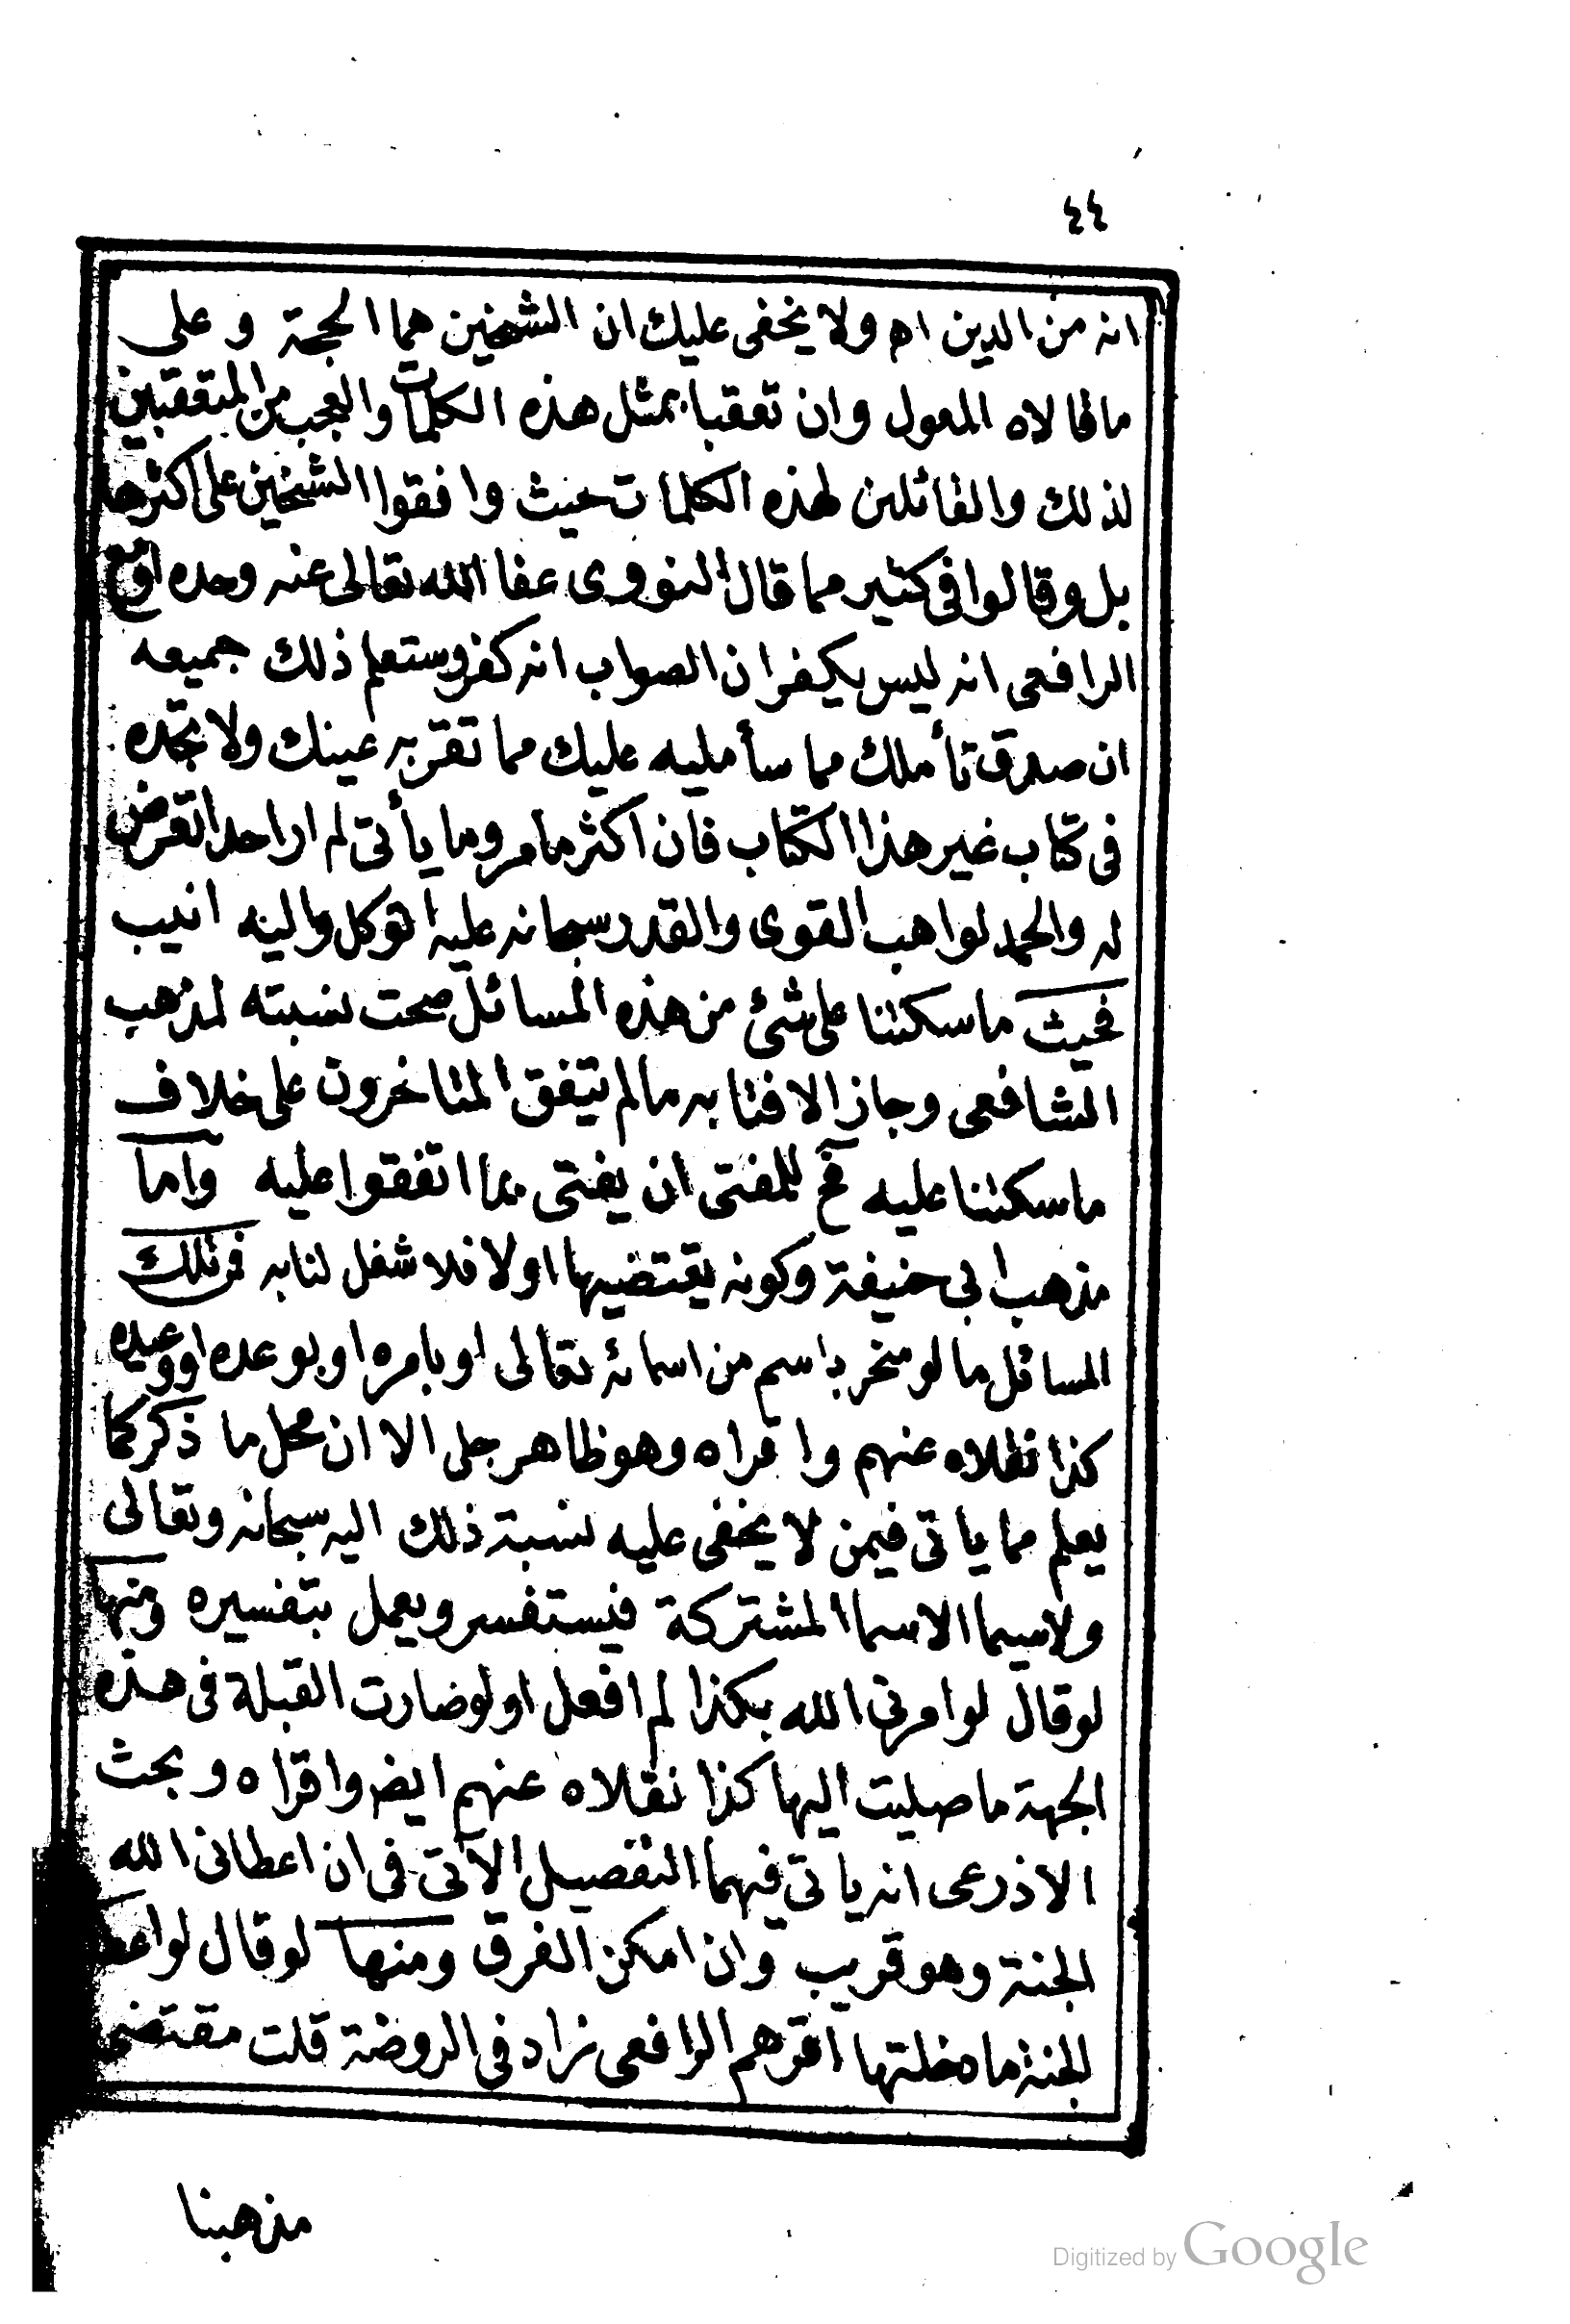 ٤٤
انه من الدين اه ولا يخفى عليك ان الشيخين هما الحجة وعلى
ما قالاه المعول وان تعقبا بمثل هذه الكلمات والعجب من المتعقبين
لذلك والقائلين لهذه الكلمات حيث وافقوا الشيخين على اكثرها
بل وقالوا فى كثير مما قال النووى عفا الله تعالى عنه وحده او مع
الرافعى انه ليس بكفر ان الصواب انه كفر وستعلم ذلك جميعه
ان صدق تأملك مما سأمليه عليك مما تقر به عينك ولا تجده
فى كتاب غير هذا الكتاب فان اكثر ما مر وما يأتى لم ار احدا تعرض
له والحمد لواهب القوى والقدر سبحانه عليه اتوكل واليه انيب
فحيث ما سكتنا على شئ من هذه المسائل صحت نسبته لمذهب
الشافعى وجاز الافتا به ما لم يتفق المتاخرون على خلاف
ما سكتنا عليه فح للمفتى ان يفتى بما اتفقوا عليه واما
مذهب ابى حنيفة وكونه يقتضيها اولا فلا شغل لنا به فمن تلك
المسائل ما لو سخر باسم من اسمائه تعالى او بامره او بوعده او وعيده
كذا نقلاه عنهم واقراه وهو ظاهر جلى الا ان محل ما ذكر كما
يعلم مما ياتى فيمن لا يخفى عليه نسبة ذلك اليه سبحانه وتعالى
ولاسيما الاسما المشتركة فيستفسر ويعمل بتفسيره ومنها
لو قال لو امرنى الله بكذا لم افعل او لو صارت القبلة فى هذه
الجهة ما صليت اليها كذا نقلاه عنهم ايض واقراه وبحث
الاذرعى انه ياتى فيهما التفصيل الآتى فى ان اعطانى الله
الجنة وهو قريب وان امكن الفرق ومنها لو قال لو
الجنة ما دخلتها اقرهم الرافعى زاد فى الروضة قلت مقتضى
مذهبنا
Digitized by Google